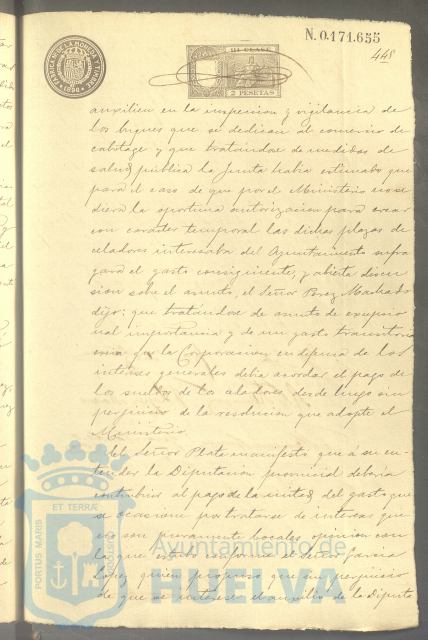 N. 0.171.655
448
FABRICA DE LA MONEDA Y TIMBRE
1890
III CLASE
2 PESETAS
auxilien en la inspeccion y vigilancia de
los buques que se dedican al comercio de
cabotage y que tratándose de medidas de
salud pública la Junta habia estimado que
para el caso de que por el Ministerio no se
diera la oportuna autorizacion para crear
con carácter temporal las dichas plazas de
celadores interesaba del Ayuntamiento sufra
gara el gasto consiguiente; y abierta discu
sion sobre el asunto, el Señor Perez Machado
dijo: que tratándose de asunto de excepcio
nal importancia y de un gasto transitorio
creia que la Corporacion en defensa de los
intereses generales debia acordar el pago de
los sueldos de los celadores desde luego sin
perjuicio de la resolucion que adopte el
Ministerio.
El Señor Plata manifestó que á su en-
tender la Diputacion provincial deberia
contribuir al pago de la mitad del gasto que
se ocasione por tratarse de intereses que
no son puramente locales, opinion con
la que el Señor Garcia
Lopez quien propuso que sin perjuicio
de que se interese el auxilio de la Diputa
PORTUS MARIS ET TERRÆ CUSTODIA
Ayuntamiento de
HUELVA